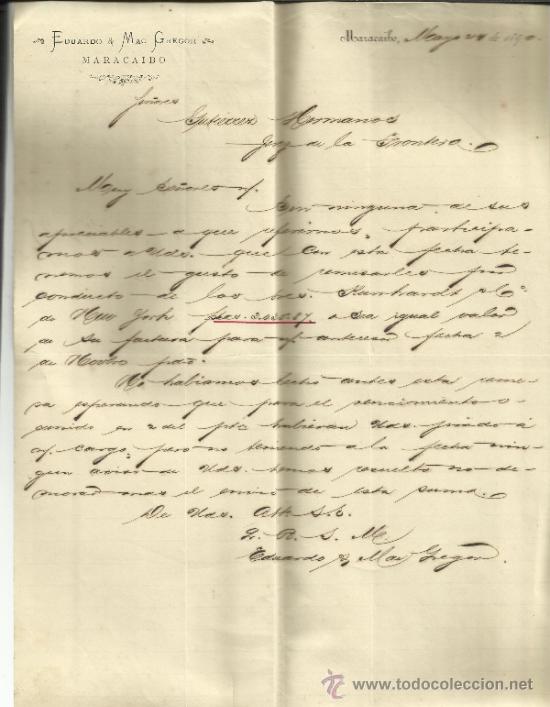 EDUARDO & MAC GREGOR
MARACAIBO
Maracaibo, Mayo de 189
Señores
Gutierrez Hermanos
Jerez de la Frontera.
Muy Señores n/.
Sin ninguna de sus
apreciables a que referirnos, participa-
mos a Uds. que con esta fecha te-
nemos el gusto de remesarles por
conducto de los Sres. Kunhardt & Co.
de New York o sea igual valor
de su factura para n/ anterior fecha 2
de Novbre ppdo.
No habiamos hecho antes esta reme-
sa esperando que para el vencimiento o-
currido en 2 del pte hubieran Uds. girado á
n/ cargo, pero no teniendo a la fecha nin-
gun aviso de Uds. hemos resuelto no de-
morar mas el envio de esta suma.
De Uds. Att. S. S.
Q. B. S. M.
Eduardo & Mac Gregor
todocoleccion
www.todocoleccion.net